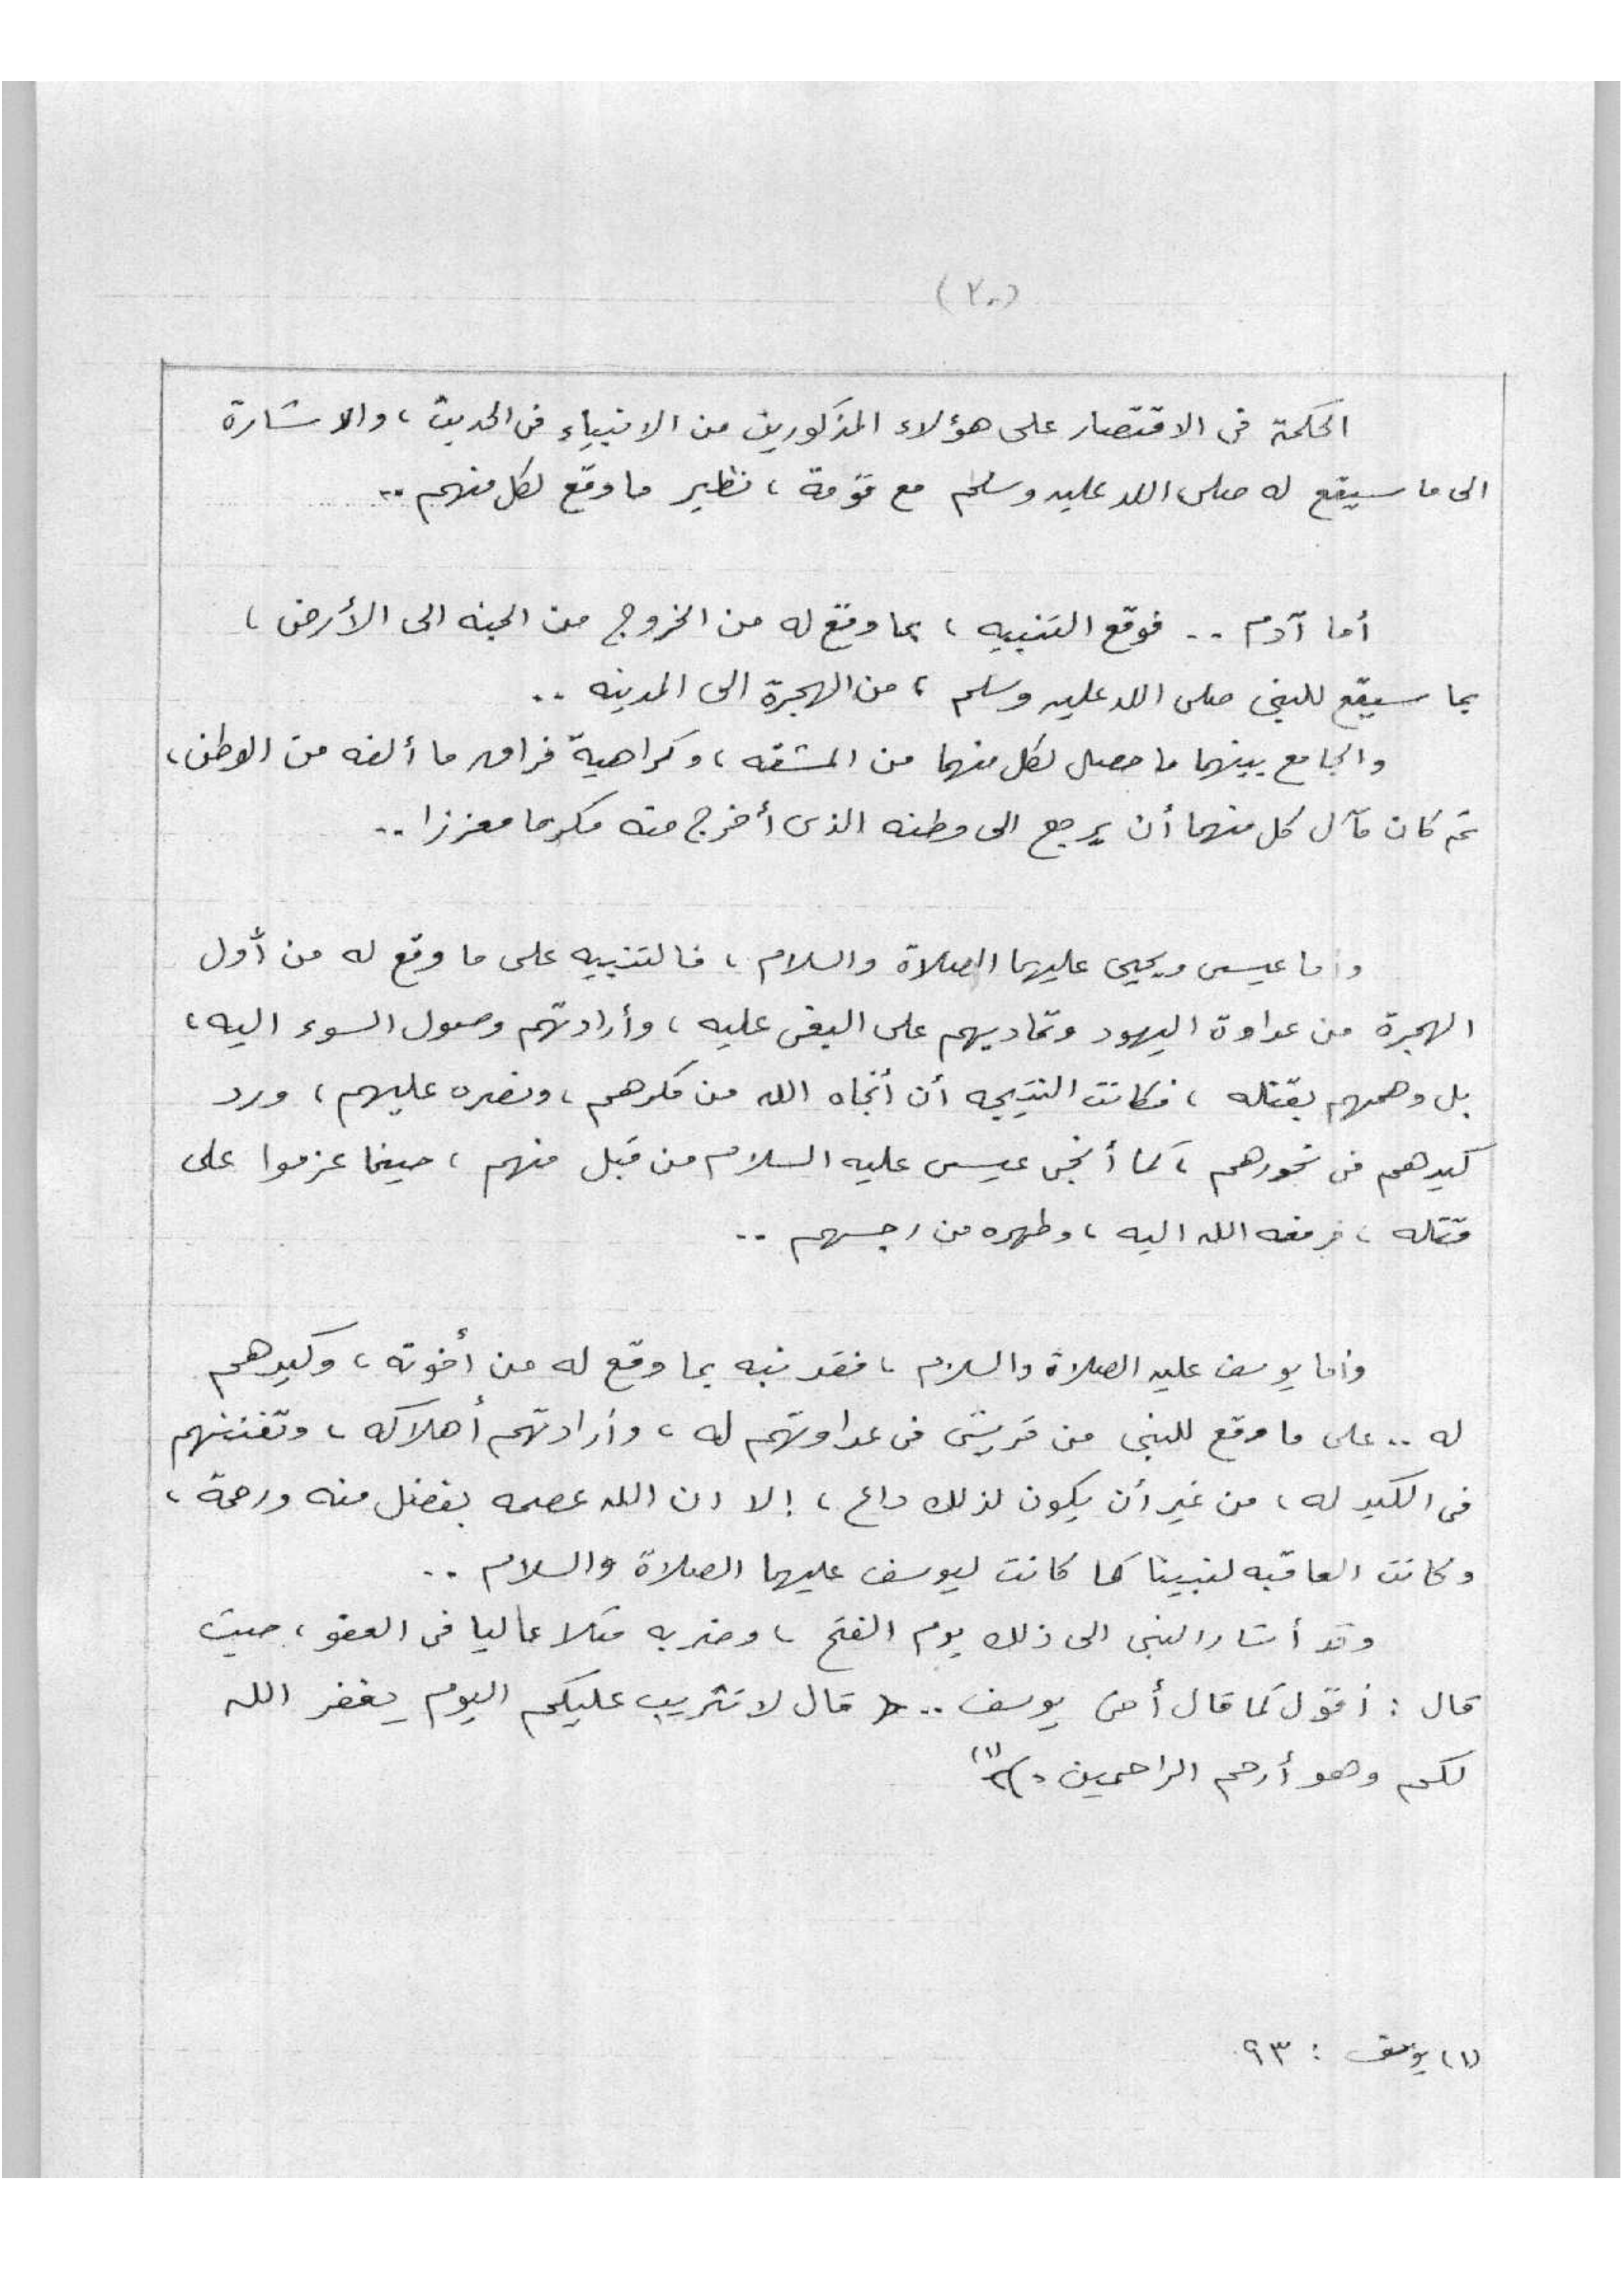 (٢٠)
الحكمة فى الاقتصار على هؤلاء المذكورين من الانبياء فى الحديث ، والاشارة
الى ما سيقع له صلى الله عليه وسلم مع قومة ، نظير ما وقع لكل منهم ..
أما آدم .. فوقع التنبيه ، بما وقع له من الخروج من الجنه الى الأرض ،
بما سيقع للنبى صلى الله عليه وسلم ، من الهجرة الى المدينه ..
والجامع بينهما ما حصل لكل منهما من المشقه ، وكراهية فراق ما ألفه من الوطن ،
ثم كان مآل كل منهما أن يرجع الى وطنه الذى أخرج منه مكرما معززا ..
وأما عيسى ويحيى عليهما الصلاة والسلام ، فالتنبيه على ما وقع له من أول
الهجرة من عداوة اليهود وتماديهم على البغى عليه ، وأرادتهم وصول السوء اليه ،
بل وهمهم بقتله ، فكانت النتيجه أن أنجاه الله من مكرهم ، ونصره عليهم ، ورد
كيدهم فى نحورهم ، كما أنجى عيسى عليه السلام من قبل منهم ، حينما عزموا على
قتله ، فرفعه الله اليه ، وطهره من رجسهم ..
وأما يوسف عليه الصلاة والسلام ، فقد نبه بما وقع له من أخوته ، وكيدهم
له .. على ما وقع للنبى من قريش فى عداوتهم له ، وأرادتهم أهلاكه ، وتفننهم
فى الكيد له ، من غير أن يكون لذلك داع ، إلا ان الله عصمه بفضل منه ورحمة ،
وكانت العاقبه لنبينا كما كانت ليوسف عليهما الصلاة والسلام ..
وقد أشار النبى الى ذلك يوم الفتح ، وضرب مثلا عاليا فى العفو ، حيث
قال : أقول كما قال أخى يوسف .. ﴿ قال لا تثريب عليكم اليوم يغفر الله
لكم وهو أرحم الراحمين . ﴾ (١)
(١) يوسف : ٩٣